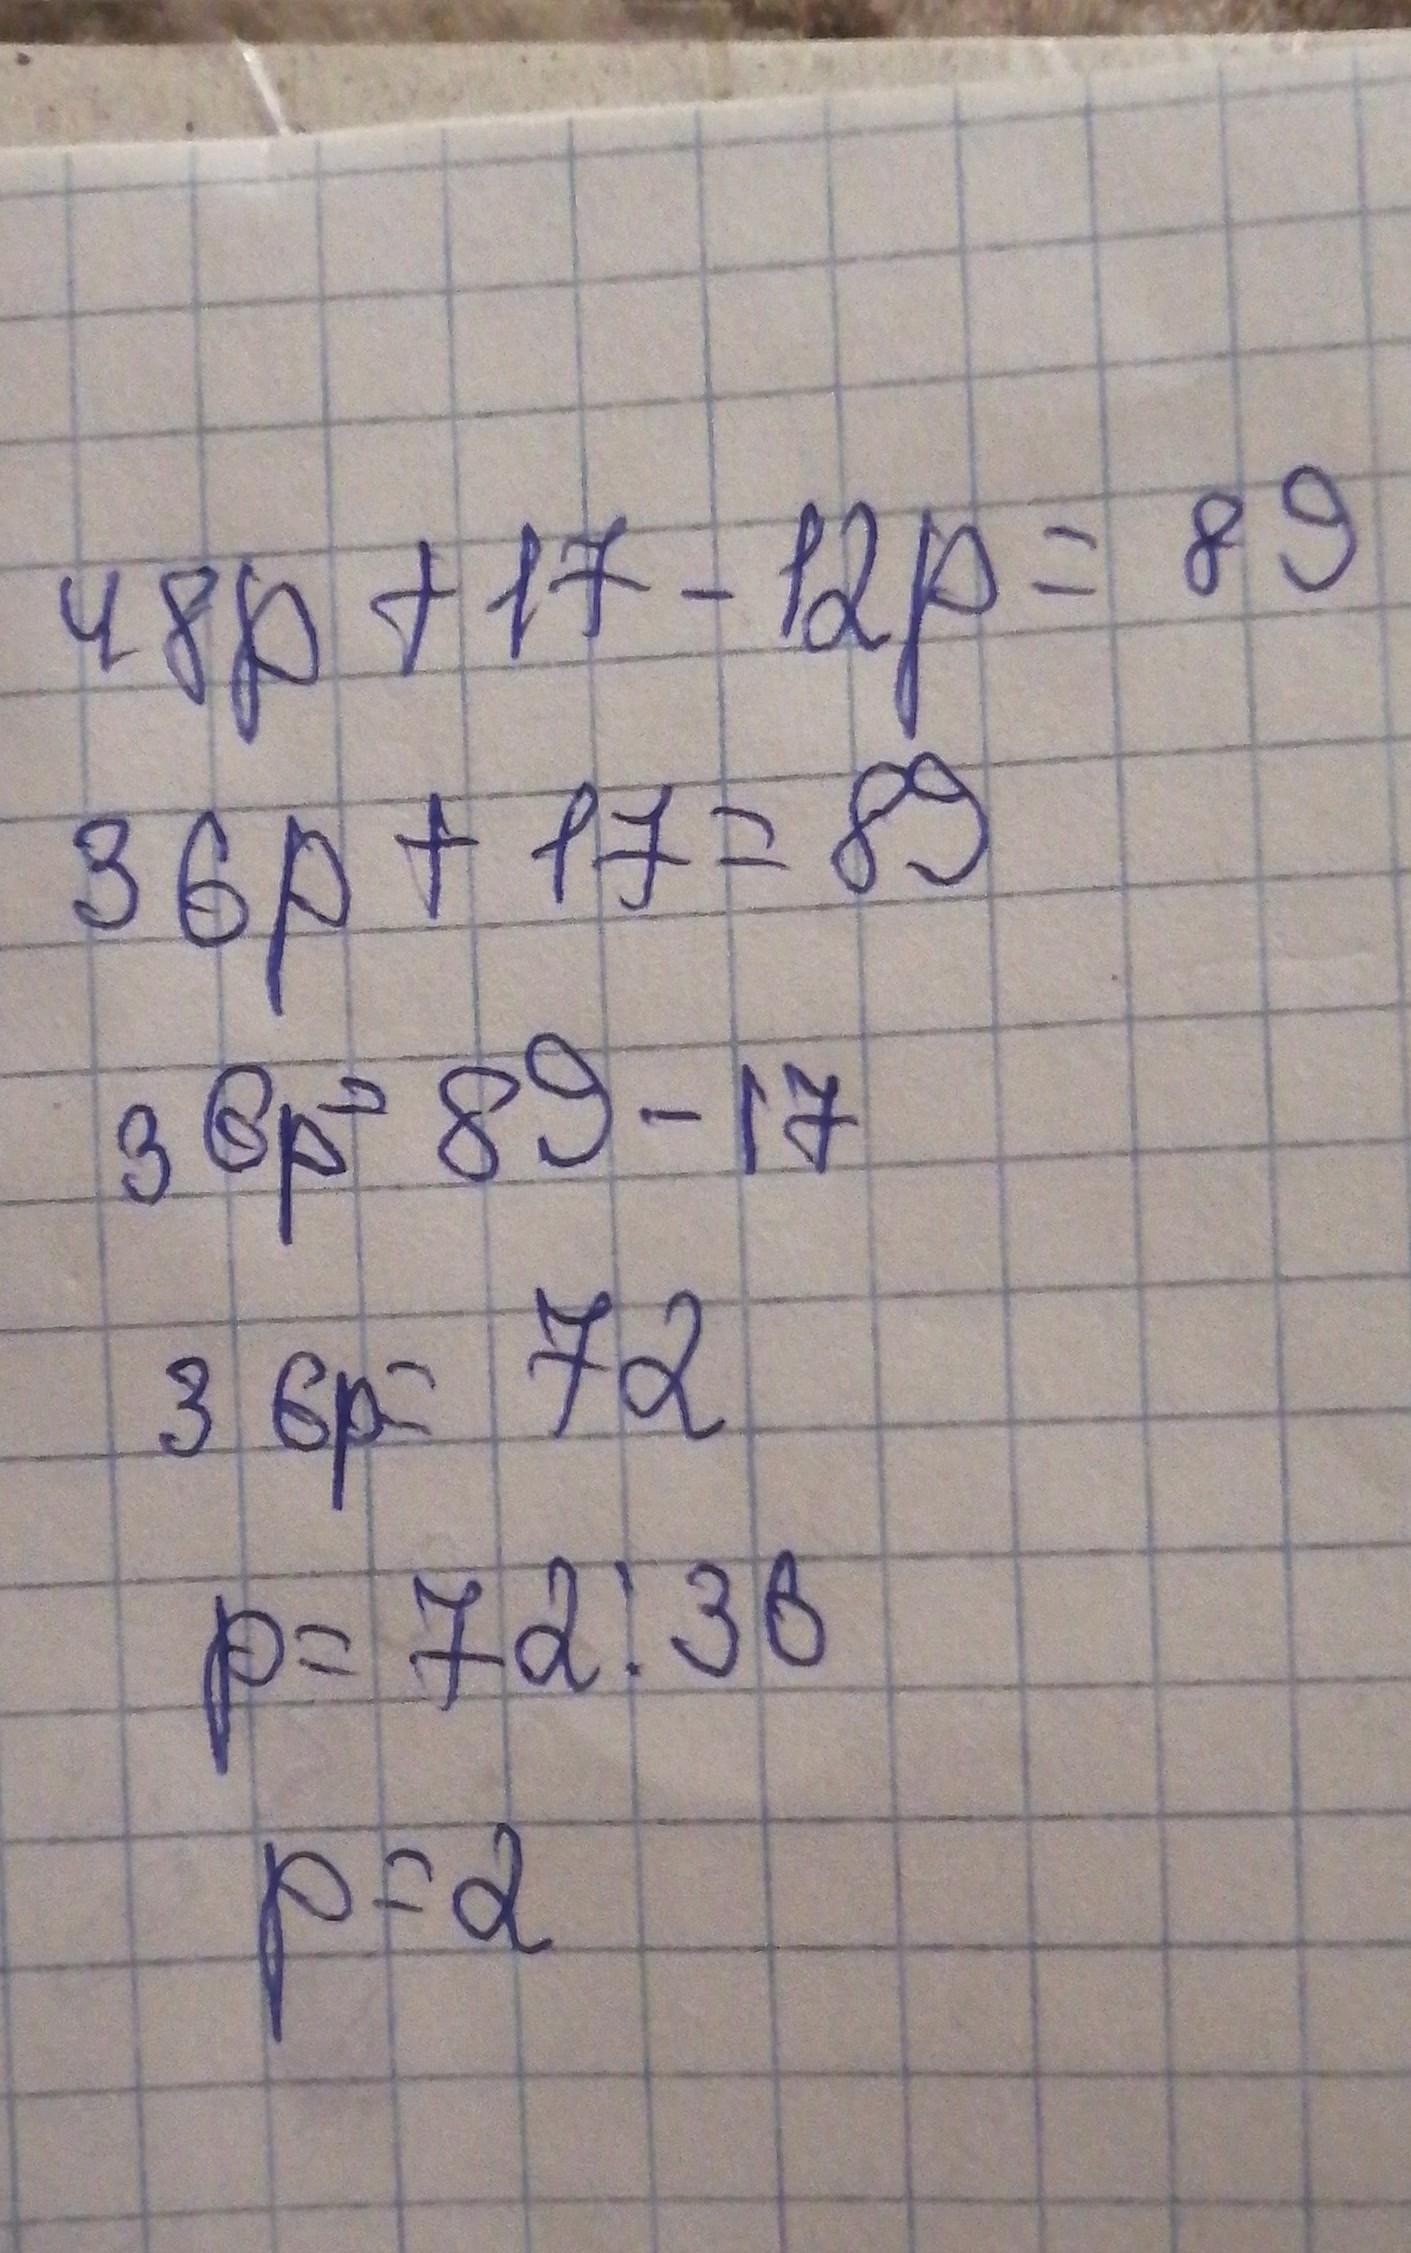 48p + 17 - 12p = 89
36p + 17 = 89
36p = 89 - 17
36p = 72
p = 72 : 36
p = 2